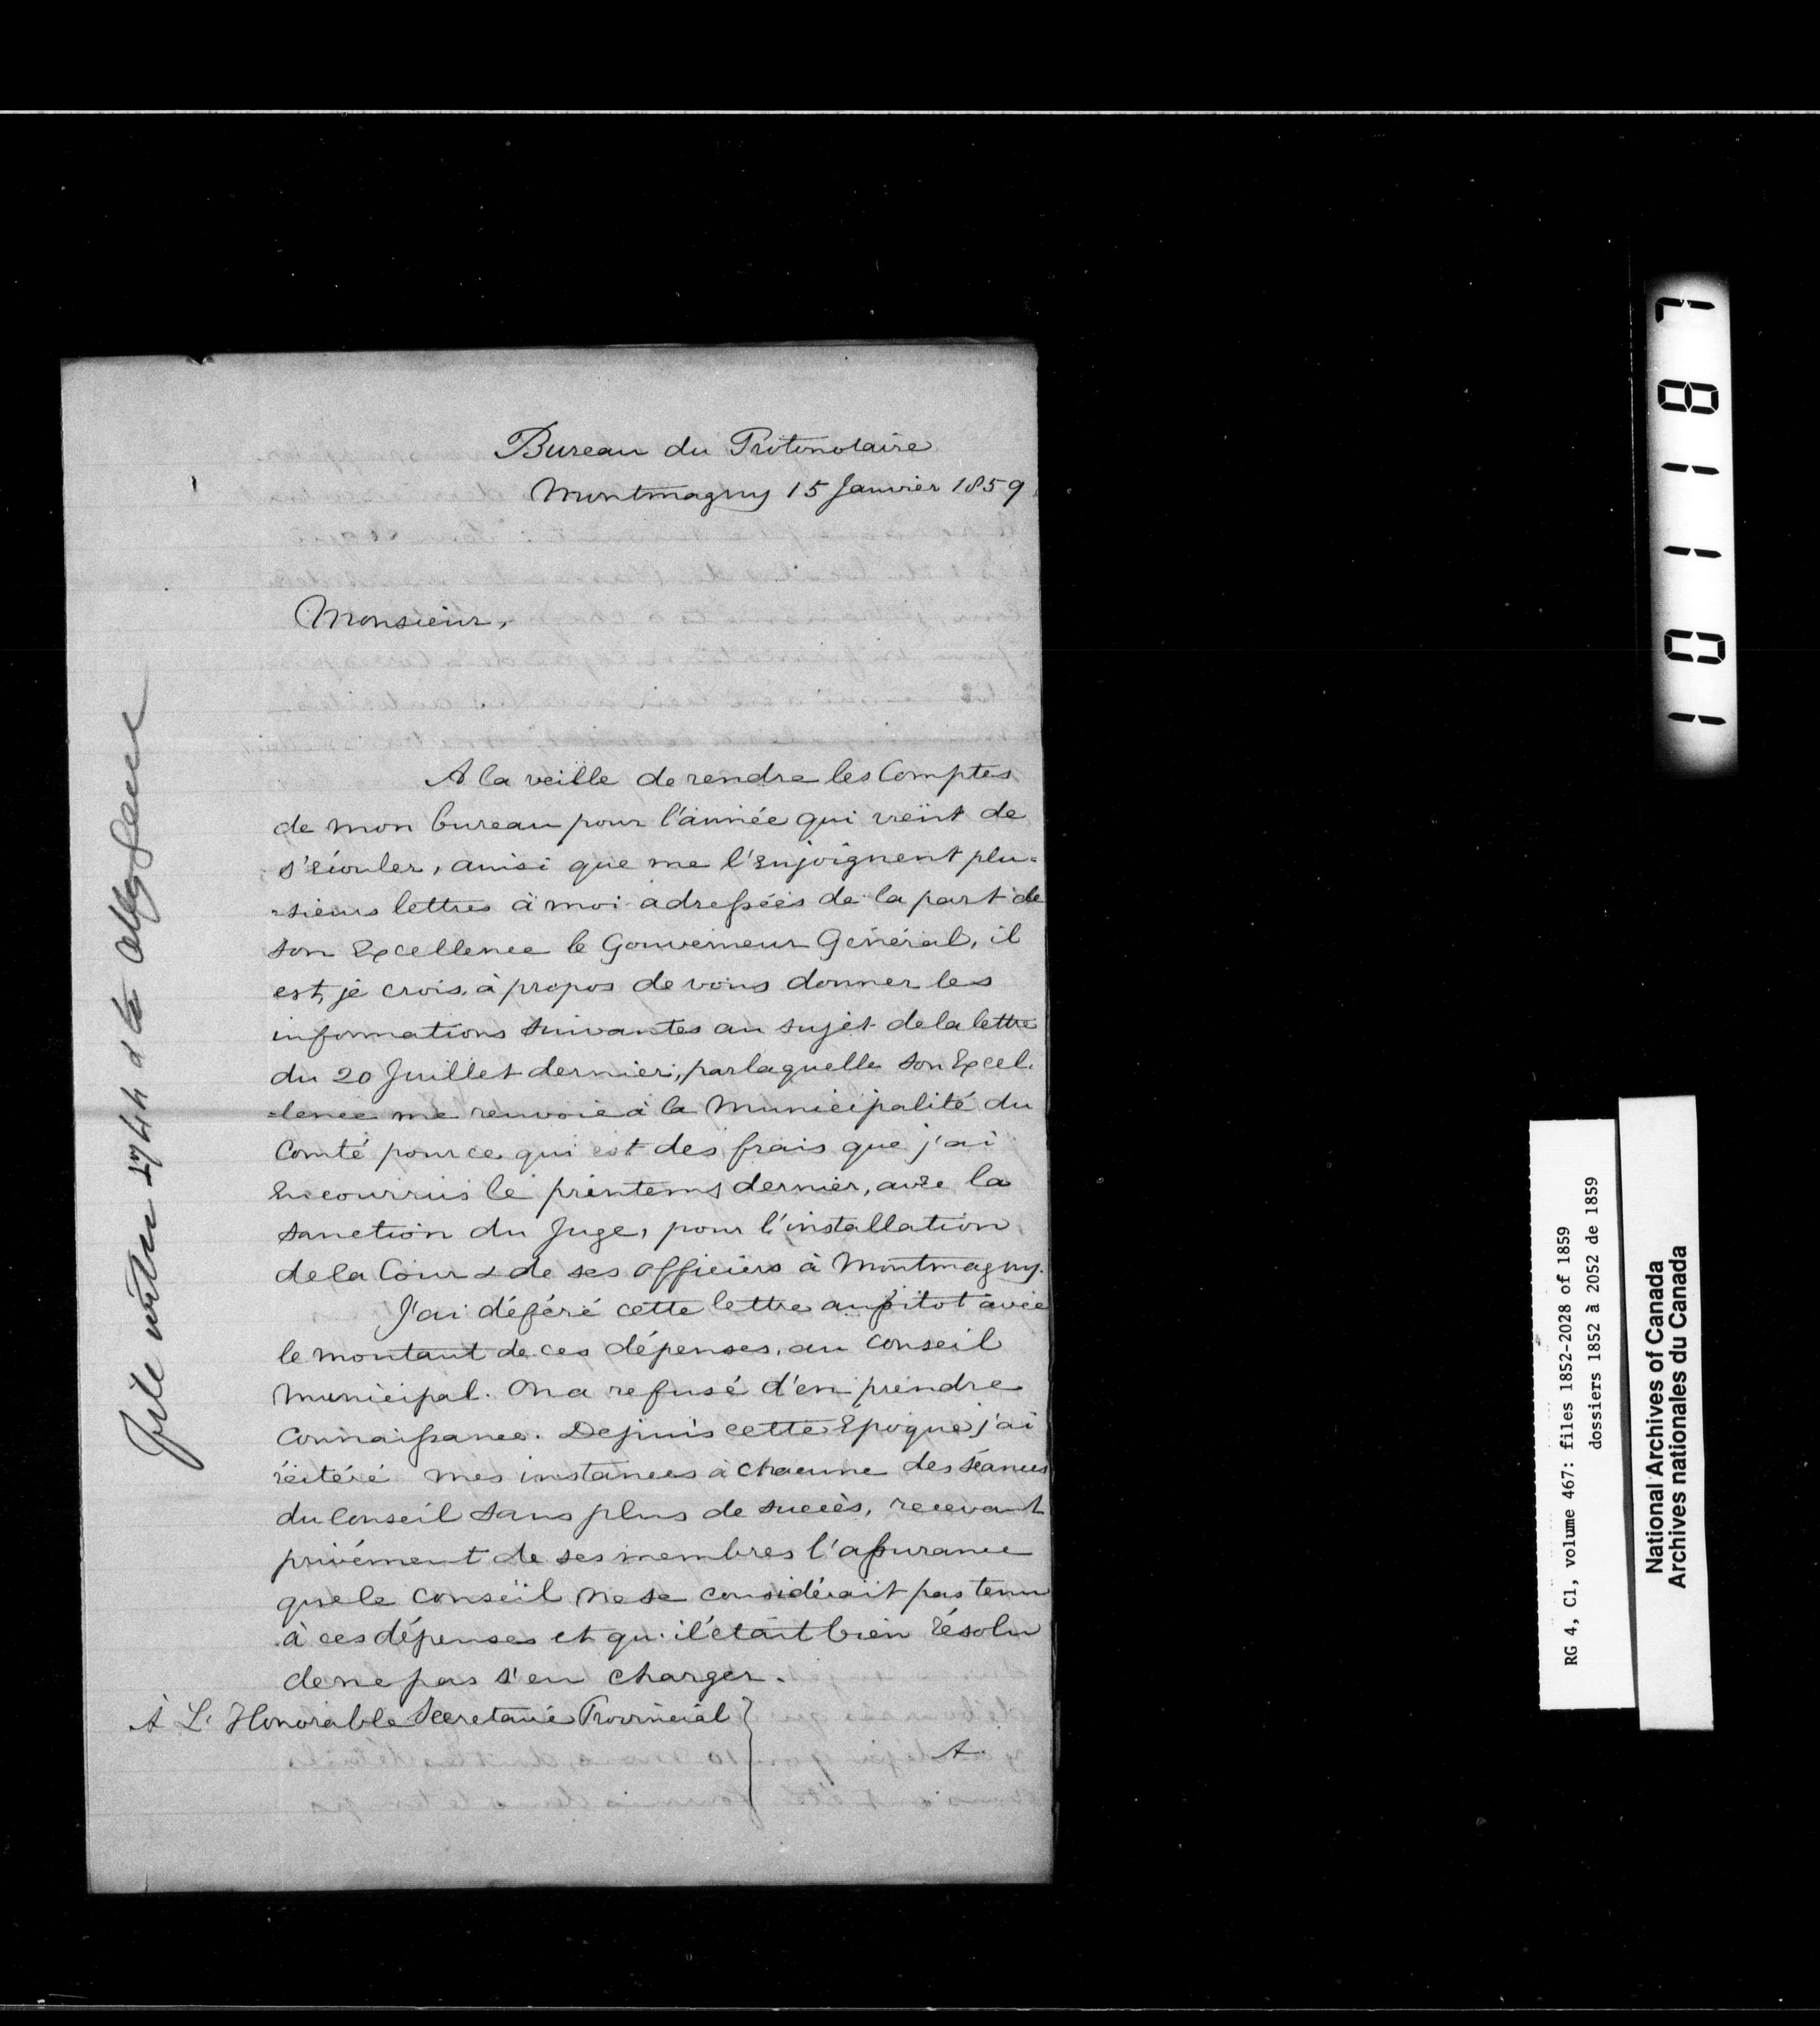 Bureau du Protonotaire
Montmagny 15 Janvier 1859
Monsieur,
A la veille de rendre les Comptes
de mon bureau pour l'année qui vient de
s'écouler, ainsi que me l'enjoignent plu=
=sieurs lettres à moi adressées de la part de
son Excellence le Gouverneur Général, il
est, je crois, à propos de vous donner les
informations suivantes au sujet de la lettre
du 20 Juillet dernier, par laquelle son Excel=
=lence me renvoie à la Municipalité du
Comté pour ce qui est des frais que j'ai
encourrus le printems dernier, avec la
sanction du Juge, pour l'installation
de la Cour & de ses officiers à Montmagny.
J'ai déféré cette lettre aussitot avec
le montant de ces dépenses, au Conseil
Municipal. On a refusé d'en prendre
Connaissance. Depuis cette Epoque j'ai
réitéré mes instances à chacune des séances
du Conseil sans plus de succès, recevant
privément de ses membres l'assurance
que le Conseil ne se considérait pas tenu
à ces dépenses et qu'il était bien résolu
de ne pas s'en charger.
À L'Honorable Secretaire Provincial }
A.
File with 1744 &
1011187
RG 4, C1, volume 467: files 1852-2028 of 1859
dossiers 1852 à 2052 de 1859
National Archives of Canada
Archives nationales du Canada